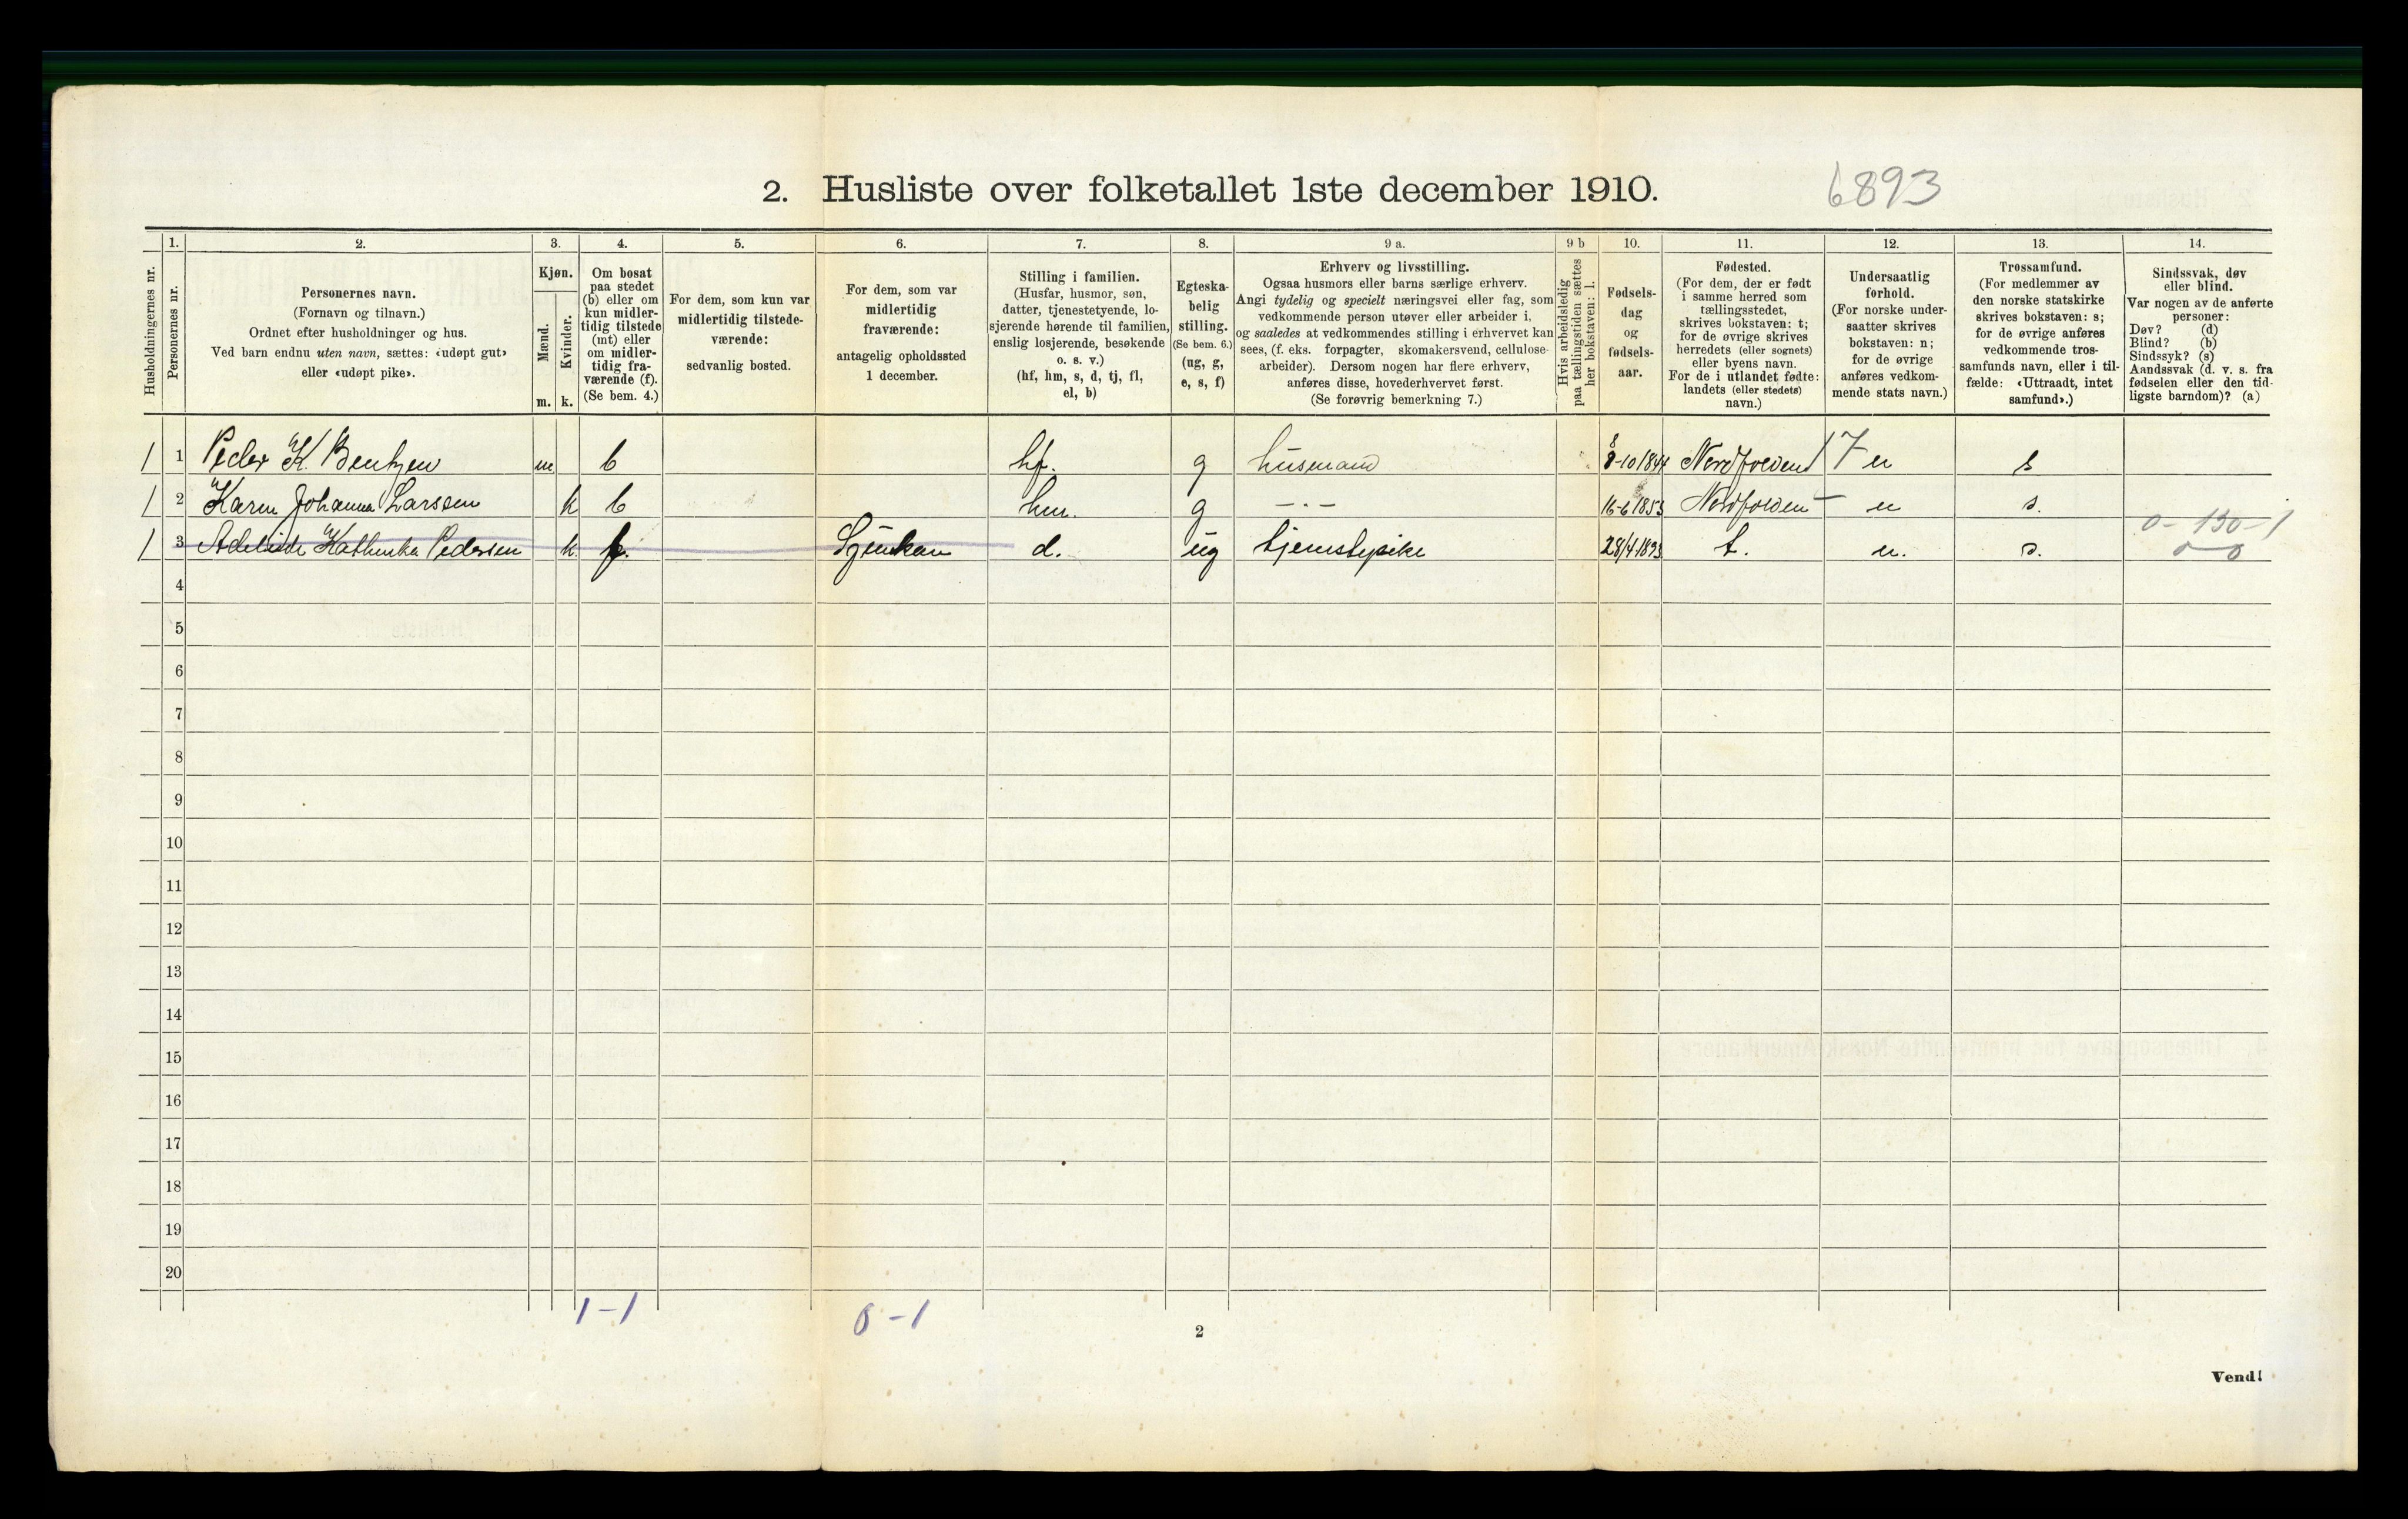 2. Husliste over folketallet 1ste december 1910.
6893
1. 2. 3. 4. 5. 6. 7. 8. 9 a. 9 b 10. 11. 12. 13. 14.
Husholdningernes nr.
Personernes nr.
Personernes navn.
(Fornavn og tilnavn.)
Ordnet efter husholdninger og hus.
Ved barn endnu uten navn, sættes: «udøpt gut»
eller «udøpt pike».
Kjøn.
Mænd.
Kvinder.
m. k.
Om bosat
paa stedet
(b) eller om
kun midler-
tidig tilstede
(mt) eller
om midler-
tidig fra-
værende (f).
(Se bem. 4.)
For dem, som kun var
midlertidig tilstede-
værende:
sedvanlig bosted.
For dem, som var
midlertidig
fraværende:
antagelig opholdssted
1 december.
Stilling i familien.
(Husfar, husmor, søn,
datter, tjenestetyende, lo-
sjerende hørende til familien,
enslig losjerende, besøkende
o. s. v.)
(hf, hm, s, d, tj, fl,
el, b)
Egteska-
belig
stilling.
(Se bem. 6.)
(ug, g,
e, s, f)
Erhverv og livsstilling.
Ogsaa husmors eller barns særlige erhverv.
Angi tydelig og specielt næringsvei eller fag, som
vedkommende person utøver eller arbeider i,
og saaledes at vedkommendes stilling i erhvervet kan
sees, (f. eks. forpagter, skomakersvend, cellulose-
arbeider). Dersom nogen har flere erhverv,
anføres disse, hovederhvervet først.
(Se forøvrig bemerkning 7.)
Hvis arbeidsledig
paa tællingstiden sættes
her bokstaven: l.
Fødsels-
dag
og
fødsels-
aar.
Fødested.
(For dem, der er født
i samme herred som
tællingsstedet,
skrives bokstaven: t;
for de øvrige skrives
herredets (eller sognets)
eller byens navn.
For de i utlandet fødte:
landets (eller stedets)
navn.)
Undersaatlig
forhold.
(For norske under-
saatter skrives
bokstaven: n;
for de øvrige
anføres vedkom-
mende stats navn.)
Trossamfund.
(For medlemmer av
den norske statskirke
skrives bokstaven: s;
for de øvrige anføres
vedkommende tros-
samfunds navn, eller i til-
fælde: «Uttraadt, intet
samfund».)
Sindssvak, døv
eller blind.
Var nogen av de anførte
personer:
Døv? (d)
Blind? (b)
Sindssyk? (s)
Aandssvak (d. v. s. fra
fødselen eller den tid-
ligste barndom)? (a)
1 1 Peder K. Bentzen m b hf. g husmand 8-10 1844 Nordfolden 17 n s
1 2 Karen Johanna Larssen k b hm. g -"- 16-6 1853 Nordfolden - n s.
0-130-1
1 3 Kathinka Pedersen k. f. d. ug tjenestepike 28/4 1893 t. n. s. 0-0
4
5
6
7
8
9
10
11
12
13
14
15
16
17
18
19
20
1-1 0-1
2
Vend!